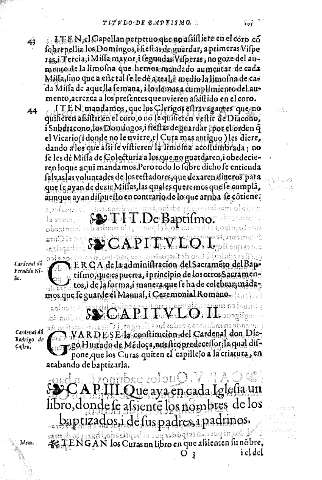 TITVLO DE BAPTISMO. 195
43 ITEN, el Capellan perpetuo que no assistiere en el coro cō
sobrepelliz los Domingos, i fiestas de guardar, a primeras Vispe
ras, i Tercia, i Missa mayor, i segundas Visperas, no goze del au-
mento de la limosna que hemos mandado aumentar de cada
Missa, sino que a este tal se le dè a real, è medio la limosna de ca-
da Missa de aquella semana, i lo demas a cumplimiento del au-
mento, acrezca a los presentes que uvieren assistido en el coro.
44 ITEN mandamos, que los Clerigos estravagantes que no
quisieren assistir en el coro, o no se quisieren vestir de Diacono,
i Subdiacono, los Domingos, i fiestas de guardar, por el orden q̃
el Vicario (i donde no le uviere, el Cura mas antiguo) les diere,
dando a los que assi se vistieren la limosna acostumbrada; no
se les dè Missa de Colecturia a los que no guardaren, i obedecie-
ren lo que aqui mandamos. Pero todo lo sobre dicho se entienda
salvas las voluntades de los testadores, que dexaren dineros para
que se ayan de dezir Missas, las quales queremos que se cumplā,
aunque ayan dispuesto en contrario de lo que arriba se cōtiene.
TIT. De Baptismo.
CAPITVLO. I.
Cardenal dō
Fernādo Ni-
ño.
CERCA de la administracion del Sacramēto del Bap-
tismo, que es puerta, i principio de los otros Sacramen-
tos, i de la forma, i manera que se ha de celebrar, māda-
mos que se guarde el Manual, i Ceremonial Romano.
CAPITVLO. II.
Cardenal dō
Rodrigo de
Castro.
GVARDESE la constitucion del Cardenal don Die-
go Hurtado de Mēdoça, nuestro predecessor, la qual dis-
pone, que los Curas quiten el capillejo a la criatura, en
acabando de baptizarla.
CAP. III. Que aya en cada Iglesia un
libro, donde se assienten los nombres de los
baptizados, i de sus padres, i padrinos.
Idem. TENGAN los Curas un libro en que assienten su nōbre,
O 3 i el del